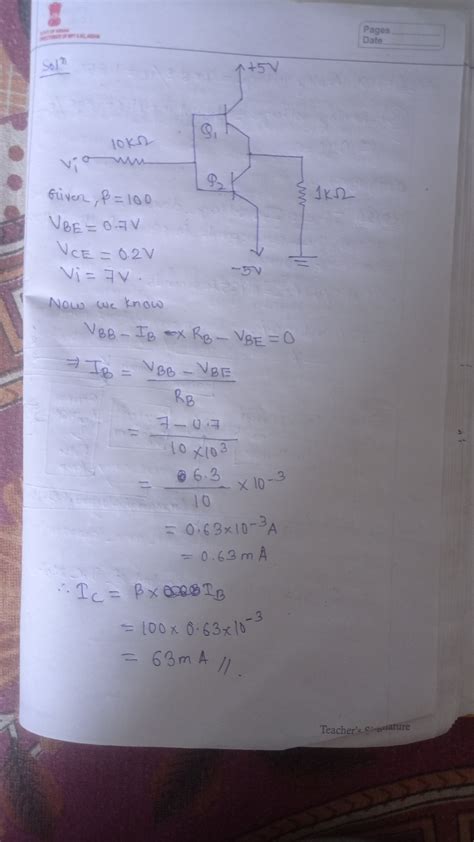 Pages
Date
Solⁿ
+5V
10KΩ
Q₁
Vi
Q₂
1KΩ
-5V
Given, β = 100
V_BE = 0.7V
V_CE = 0.2V
Vi = 7V.
Now we know
V_BB - I_B × R_B - V_BE = 0
⇒ I_B = (V_BB - V_BE) / R_B
= (7 - 0.7) / (10 × 10³)
= 6.3 / 10 × 10⁻³
= 0.63 × 10⁻³ A
= 0.63 mA
∴ I_C = β × I_B
= 100 × 0.63 × 10⁻³
= 63 mA //.
Teacher's Signature